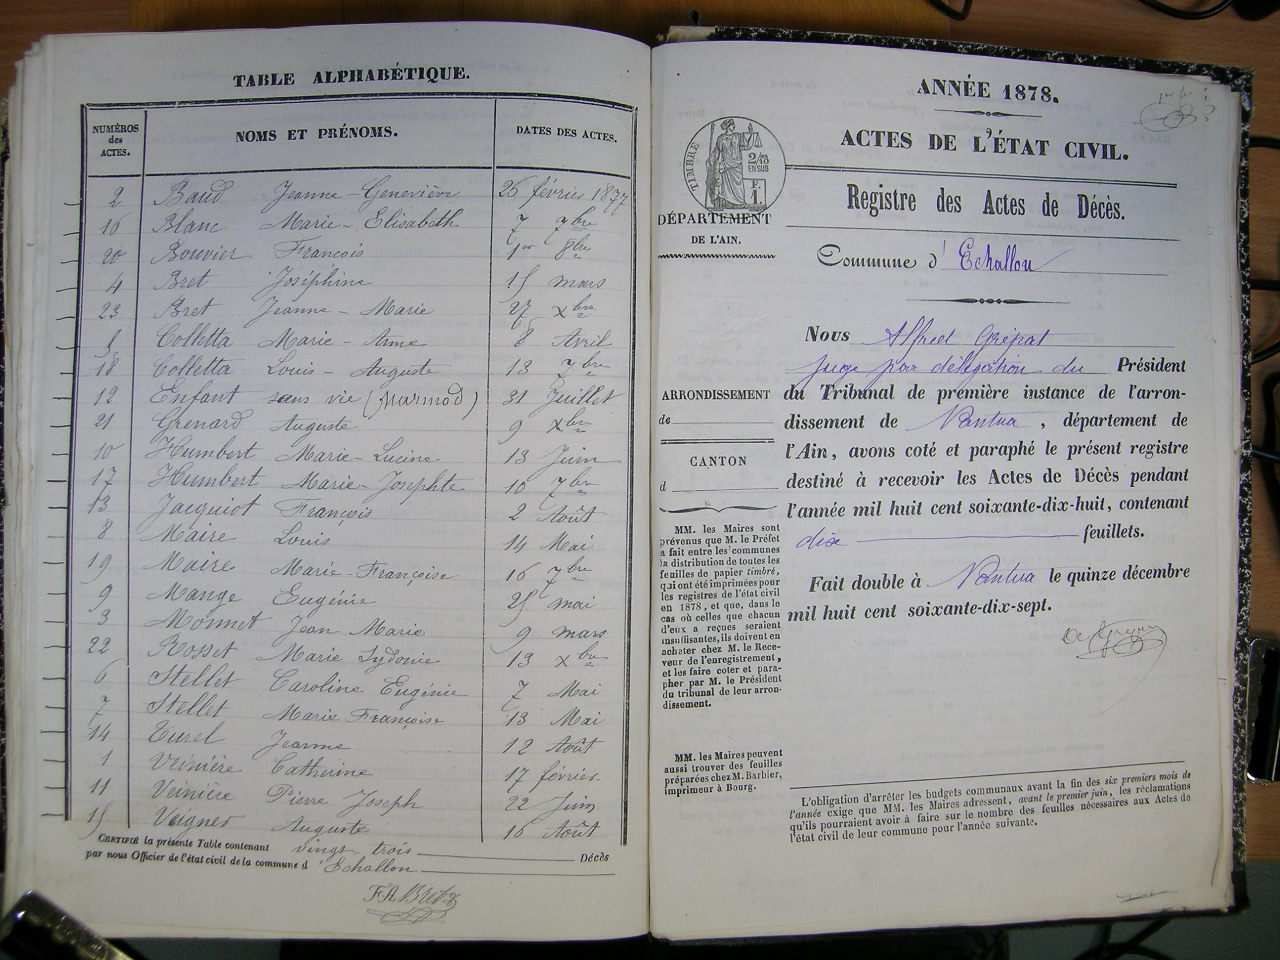 TABLE ALPHABÉTIQUE.
NUMÉROS des ACTES. NOMS ET PRÉNOMS. DATES DES ACTES.
2 Baud Jeanne-Geneviève 26 février 1877
16 Blanc Marie-Elisabeth 7 7bre
20 Bouvier François 1er 8bre
4 Bret Joséphine 15 mars
23 Bret Jeanne-Marie 27 Xbre
5 Colletta Marie-Anne 8 Avril
18 Colletta Louis-Auguste 13 7bre
12 Enfant sans vie (Marmod) 31 Juillet
21 Grenard Auguste 9 Xbre
10 Humbert Marie-Lucine 13 Juin
17 Humbert Marie-Josephte 10 7bre
13 Jacquiot François 2 Août
8 Maire Louis 14 Mai
19 Maire Marie-Françoise 16 7bre
9 Mange Eugénie 25 mai
3 Monnet Jean Marie 9 mars
22 Rosset Marie Sydonie 13 Xbre
6 Stellet Caroline Eugénie 7 Mai
7 Stellet Marie Françoise 13 Mai
14 Turel Jeanne 12 Août
1 Veinière Catherine 17 février
11 Veinière Pierre Joseph 22 Juin
15 Voegner Auguste 16 Août
CERTIFIÉ la présente Table contenant vingt trois Décès
par nous Officier de l'état civil de la commune d'Echallon
ANNÉE 1878.
ACTES DE L'ÉTAT CIVIL.
Registre des Actes de Décès.
Commune d'Echallon
TIMBRE
2/10
EN SUS
F.
1.
DÉPARTEMENT
DE L'AIN.
ARRONDISSEMENT
de
CANTON
d
MM. les Maires sont
prévenus que M. le Préfet
a fait entre les communes
la distribution de toutes les
feuilles de papier timbré,
qui ont été imprimées pour
les registres de l'état civil
en 1878, et que, dans le
cas où celles que chacun
d'eux a reçues seraient
insuffisantes, ils doivent en
acheter chez M. le Rece-
veur de l'enregistrement,
et les faire coter et para-
pher par M. le Président
du tribunal de leur arron-
dissement.
MM. les Maires peuvent
aussi trouver des feuilles
préparées chez M. Barbier,
imprimeur à Bourg.
Nous Alfred
juge par délégation du Président
du Tribunal de première instance de l'arron-
dissement de Nantua, département de
l'Ain, avons coté et paraphé le présent registre
destiné à recevoir les Actes de Décès pendant
l'année mil huit cent soixante-dix-huit, contenant
dix feuillets.
Fait double à Nantua le quinze décembre
mil huit cent soixante-dix-sept.
L'obligation d'arrêter les budgets communaux avant la fin des six premiers mois de
l'année exige que MM. les Maires adressent, avant le premier juin, les réclamations
qu'ils pourraient avoir à faire sur le nombre des feuilles nécessaires aux Actes de
l'état civil de leur commune pour l'année suivante.